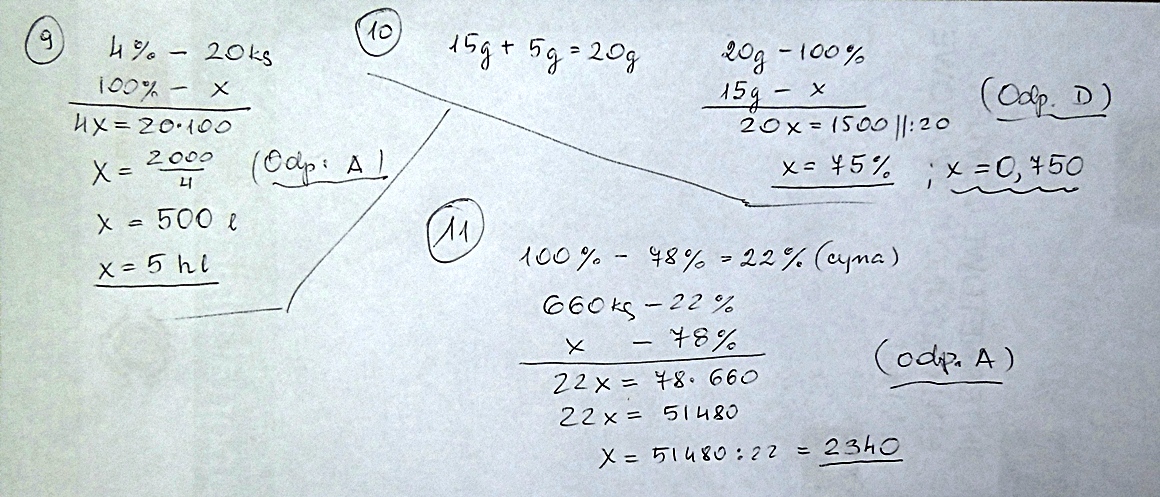 9
4% - 20kg
100% - x
4x = 20·100
x = 2000/4 (Odp: A)
x = 500 l
x = 5 hl
10
15g + 5g = 20g
20g - 100%
15g - x
20x = 1500 ||:20
(Odp. D)
x = 75% ; x = 0,750
11
100% - 78% = 22% (cyna)
660kg - 22%
x - 78%
22x = 78·660
22x = 51480
x = 51480:22 = 2340
(odp. A)